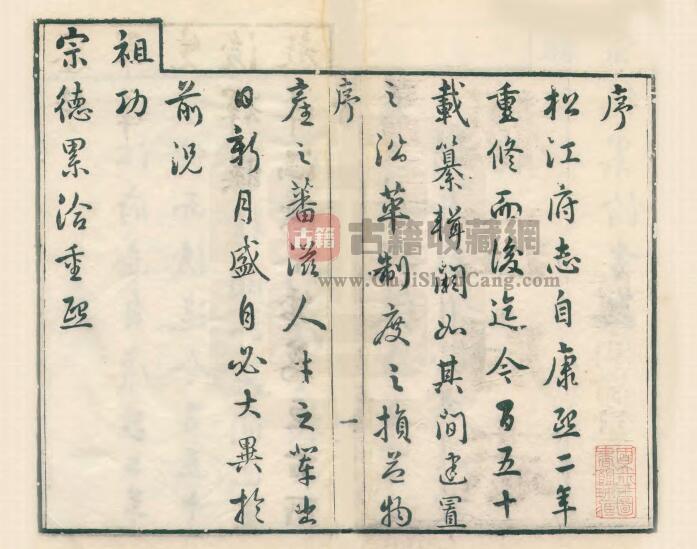 序
松江府志自康熙二年
重修而後迄今百五十
載纂輯闕如其間建置
之沿革制度之損益物
序
一
產之蕃滋人才之輩出
日新月盛自必大異於
前況
祖功
宗德累洽重熙
古籍
古籍收藏網
www.GuJiShouCang.com